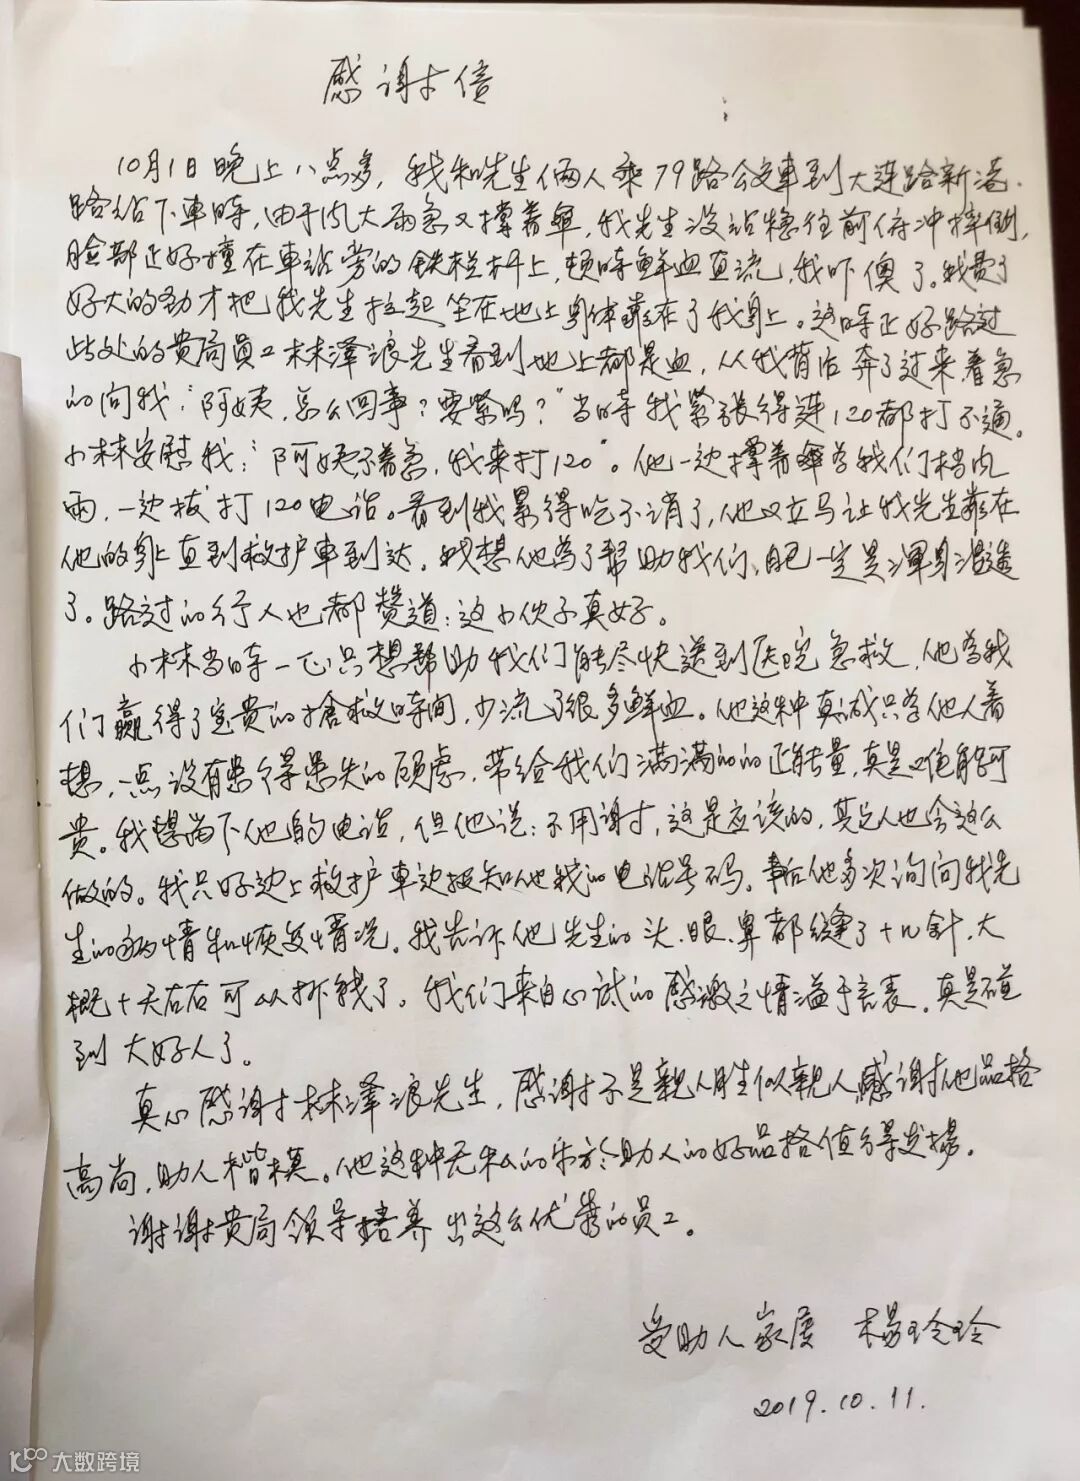 感谢信
10月1日晚上八点多，我和先生俩人乘79路公交車到大连路新港
路站下車時，由于风大雨急又撑着伞，我先生没站稳往前俯冲摔倒，
脸部正好撞在車站旁的铁栏杆上，顿時鲜血直流，我吓傻了。我费了
好大的劲才把我先生拉起坐在地上身体靠在了我身上。这時正好路过
此处的贵局员工林泽浪先生看到地上都是血，从我背后奔了过来着急
的问我：“阿姨，怎么回事？要紧吗？”当時我紧張得连120都打不通。
小林安慰我：“阿姨不着急，我来打120”。他一边撑着伞为我们档风
雨，一边拔打120电话。看到我累得吃不消了，他又立马让我先生靠在
他的身上直到救护車到达。我想他為了帮助我们、自己一定是浑身湿透
了。路过的行人也都赞道：这小伙子真好。
小林当時一心只想帮助我们能尽快送到医院急救，他為我
们赢得了宝贵的搶救時间，少流了很多鲜血。他这种真诚只為他人着
想，一点没有患得患失的顾虑，带给我们满满的的正能量，真是难能可
贵。我想留下他的电话，但他说：不用谢，这是应该的，其它人也会这么
做的。我只好边上救护車边报知他我的电话号码。事后他多次询问我先
生的病情和恢复情况。我告诉他先生的头、眼、鼻都缝了十几针，大
概十天左右可以拆线了。我们来自心诚的感激之情溢于言表，真是碰
到大好人了。
真心感谢林泽浪先生，感谢不是親人胜似親人感谢他品格
高尚，助人楷模。他这种无私的乐於助人的好品格值得发揚。
谢谢贵局领导培养出这么优秀的员工。
受助人家属 杨玲玲
2019.10.11.
大数跨境